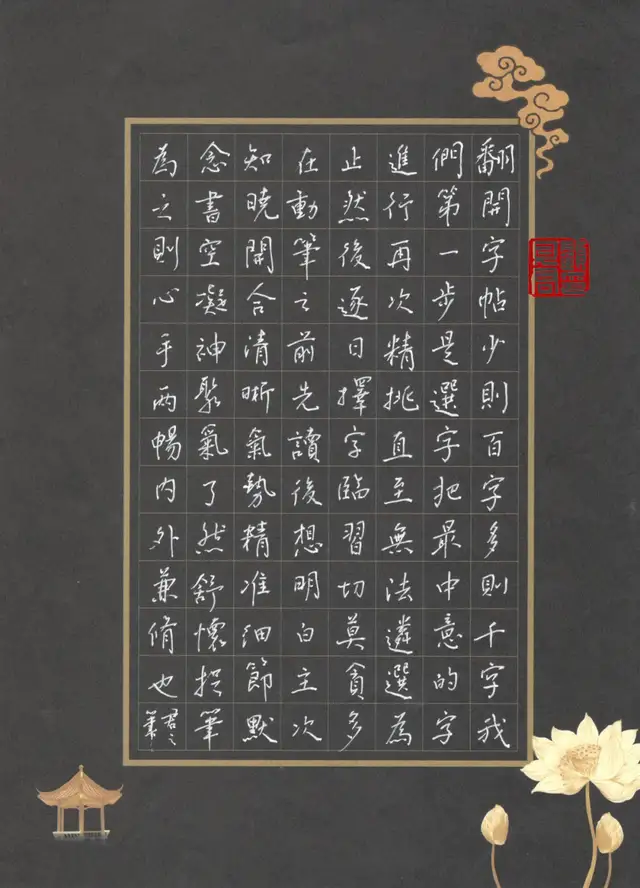 翻開字帖少則百字多則千字我
們第一步是選字把最中意的字
進行再次精挑直至無法遴選為
止然後逐日擇字臨習切莫貪多
在動筆之前先讀後想明白主次
知曉開合清晰氣勢精准細節默
念書空凝神聚氣了然舒懷提筆
為之則心手兩暢內外兼脩也